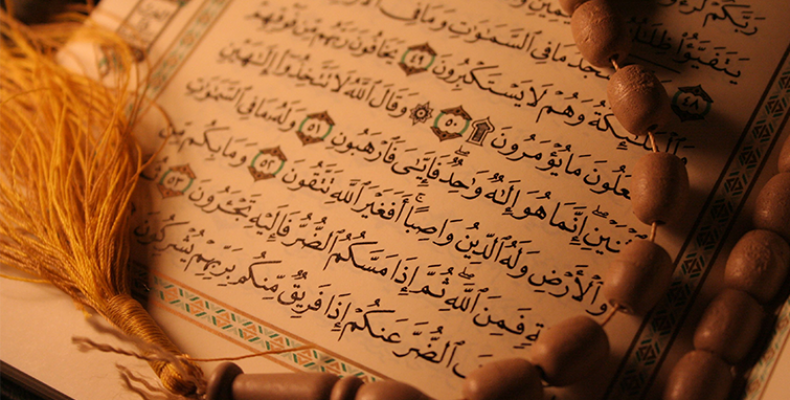 رَبَّكُمْ
يَتَفَيَّؤُا۟ ظِلَـٰلُهُۥ
٤٨ يَسْجُدُ مَا فِى ٱلسَّمَـٰوَٰتِ وَمَا فِى
وَٱلْمَلَـٰٓئِكَةُ وَهُمْ لَا يَسْتَكْبِرُونَ ٤٩ يَخَافُونَ رَبَّهُم مِّن فَوْقِهِمْ
وَيَفْعَلُونَ مَا يُؤْمَرُونَ ۩ ٥٠ ۞ وَقَالَ ٱللَّهُ لَا تَتَّخِذُوٓا۟ إِلَـٰهَيْنِ
ٱثْنَيْنِ ۖ إِنَّمَا هُوَ إِلَـٰهٌ وَٰحِدٌ ۖ فَإِيَّـٰىَ فَٱرْهَبُونِ ٥١ وَلَهُۥ مَا فِى ٱلسَّمَـٰوَٰتِ
وَٱلْأَرْضِ وَلَهُ ٱلدِّينُ وَاصِبًا ۚ أَفَغَيْرَ ٱللَّهِ تَتَّقُونَ ٥٢ وَمَا بِكُم مِّن
فَمِنَ ٱللَّهِ ۖ ثُمَّ إِذَا مَسَّكُمُ ٱلضُّرُّ فَإِلَيْهِ تَجْـَٔرُونَ ٥٣
ٱلضُّرَّ عَنكُمْ إِذَا فَرِيقٌ مِّنكُم بِرَبِّهِمْ يُشْرِكُونَ